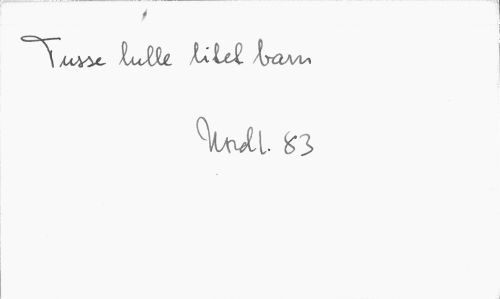 Tusse lulle litet barn
Nordl. 83